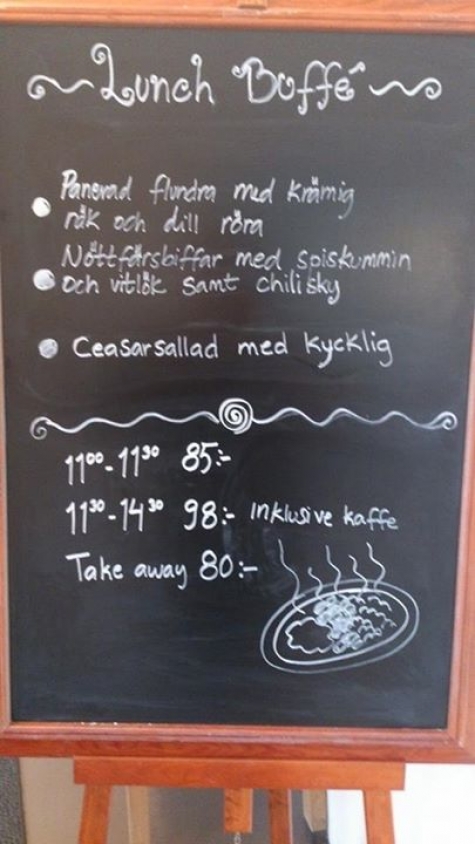 Lunch Buffé
Panerad flundra med krämig
räk och dill röra
Nöttfärsbiffar med spiskummin
och vitlök samt chilisky
Ceasarsallad med kycklig
11⁰⁰-11³⁰ 85:-
11³⁰-14³⁰ 98:- Inklusive kaffe
Take away 80:-